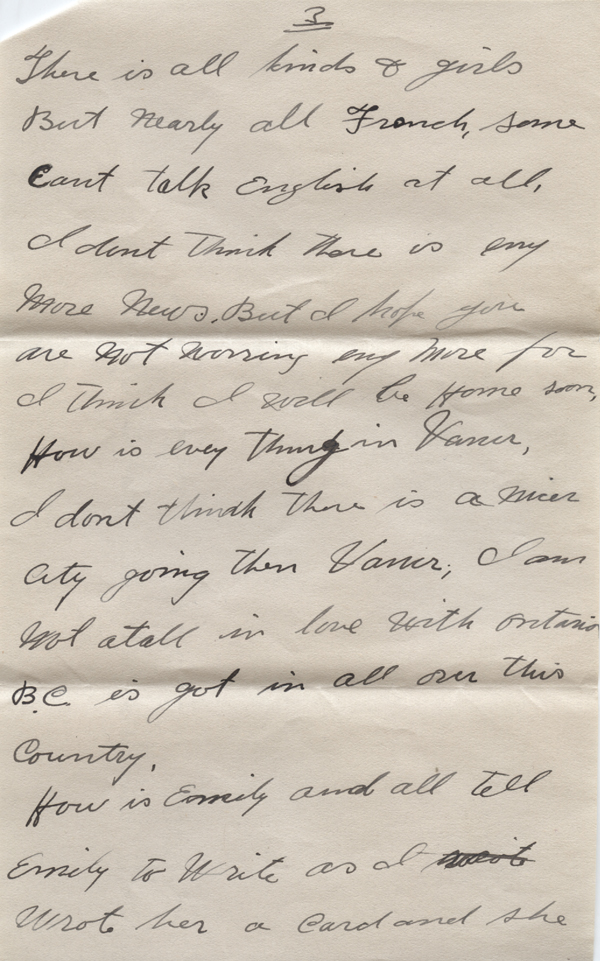 3
There is all kinds & girls
But nearly all French, some
Cant talk English at all,
I dont think there is eny
More News. But I hope you
are not worring eny more for
I think I will be Home soon,
How is evey thing in Vancr,
I dont thindk there is a nicer
City going then Vancr; I am
Not atall in love with ontario
B.C. is got in all over this
Country,
How is Emily and all tell
Emily to Write as I wrote
Wrote her a Card and she